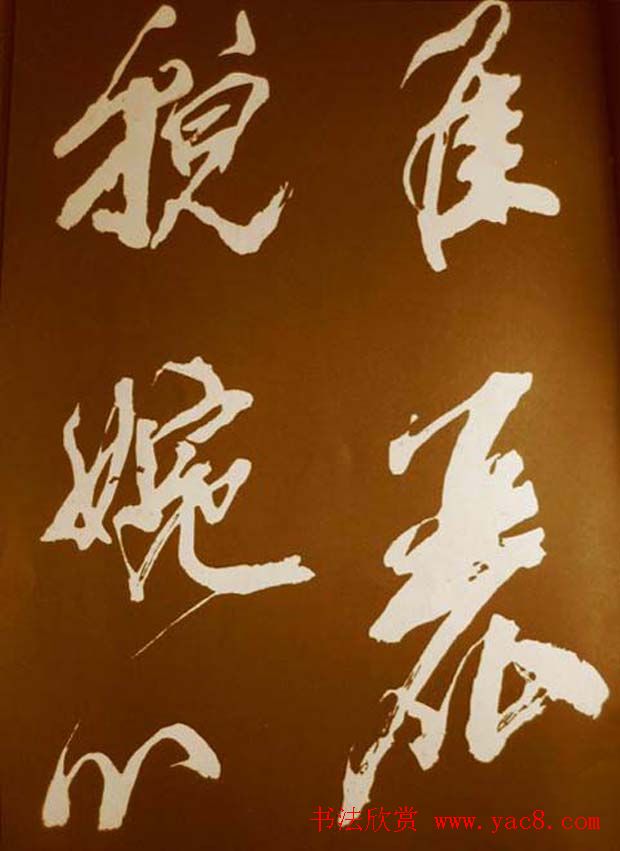 佳
貌婉心
书法欣赏 www.yac8.com